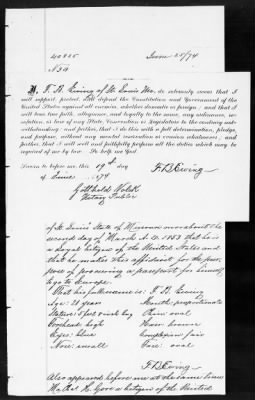 40805 June 25/74
I, F. B. Ewing of St. Louis Mo, do solemnly swear that I
will support, protect, and defend the Constitution and Government of the
United States against all enemies, whether domestic or foreign; and that I
will bear true faith, allegiance, and loyalty to the same, any ordinance, re-
solution, or law of any State, Convention or Legislature to the contrary not-
withstanding; and further, that I do this with a full determination, pledge,
and purpose, without any mental reservation or evasion whatsoever; and
further, that I will well and faithfully perform all the duties which may be
required of me by law. So help me God.
F B Ewing
Sworn to before me, this 19th day
of June 1874
Notary Public
of St. Louis State of Missouri on or about the
second day of March A.D. 1853 that he is
a loyal citizen of the United States and
that he makes this affidavit for the pur-
pose of procuring a passport for himself
to go to Europe.
That his full name is: F. B. Ewing
Age: 21 years Mouth: proportionate
Stature: 5 feet inch Eng Chin oval
Forehead: high Hair brown
Eyes: blue Complexion fair
Nose: small Face: oval
F B Ewing
Also appeared before me at the same time
H. Gore a citizen of the United